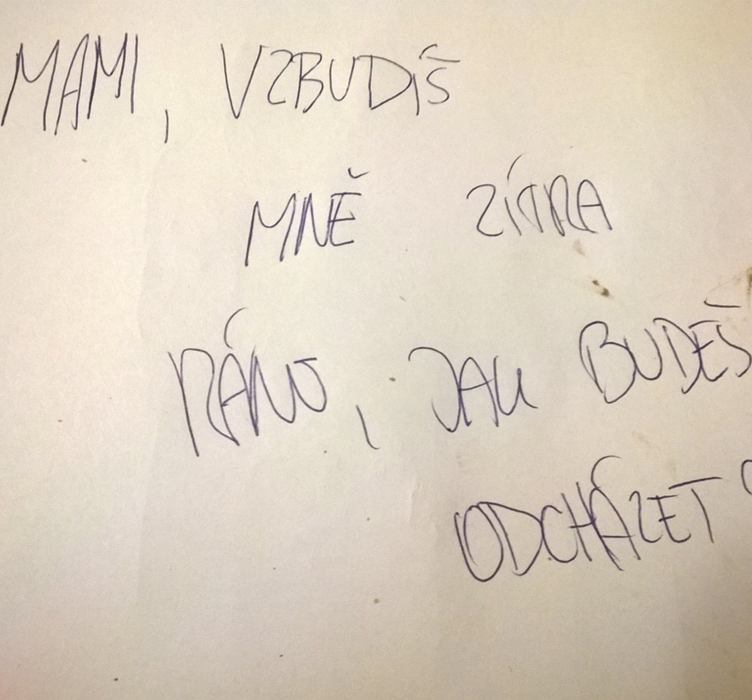 MAMI, VZBUDÍŠ
MNĚ ZÍTRA
RÁNO, JAK BUDEŠ
ODCHÁZET?